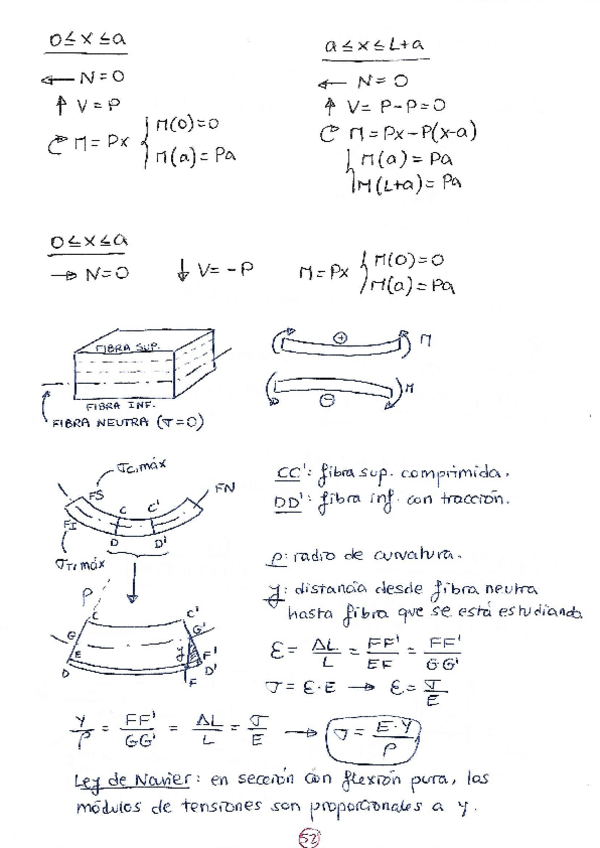 0≤x≤a
← N=0
↑ V=P
M=Px { M(0)=0
M(a)=Pa
a≤x≤L+a
← N=0
↑ V=P-P=0
M=Px-P(x-a)
M(a)=Pa
M(L+a)=Pa
0≤x≤a
→ N=0 ↓ V=-P M=Px { M(0)=0
M(a)=Pa
FIBRA SUP.
FIBRA INF.
FIBRA NEUTRA (σ=0)
⊕ M
⊖ M
σc,máx
FS FN
C C'
FI
D D'
σT,máx
CC': fibra sup. comprimida.
DD': fibra inf. con tracción.
ρ: radio de curvatura.
y: distancia desde fibra neutra
hasta fibra que se está estudiando
ρ
C C'
G G'
E y F'
D D'
F
ε = ΔL/L = FF'/EF = FF'/GG'
σ = ε·E → ε = σ/E
y/ρ = FF'/GG' = ΔL/L = σ/E → σ = E·y/ρ
Ley de Navier: en sección con flexión pura, los
módulos de tensiones son proporcionales a y.
52